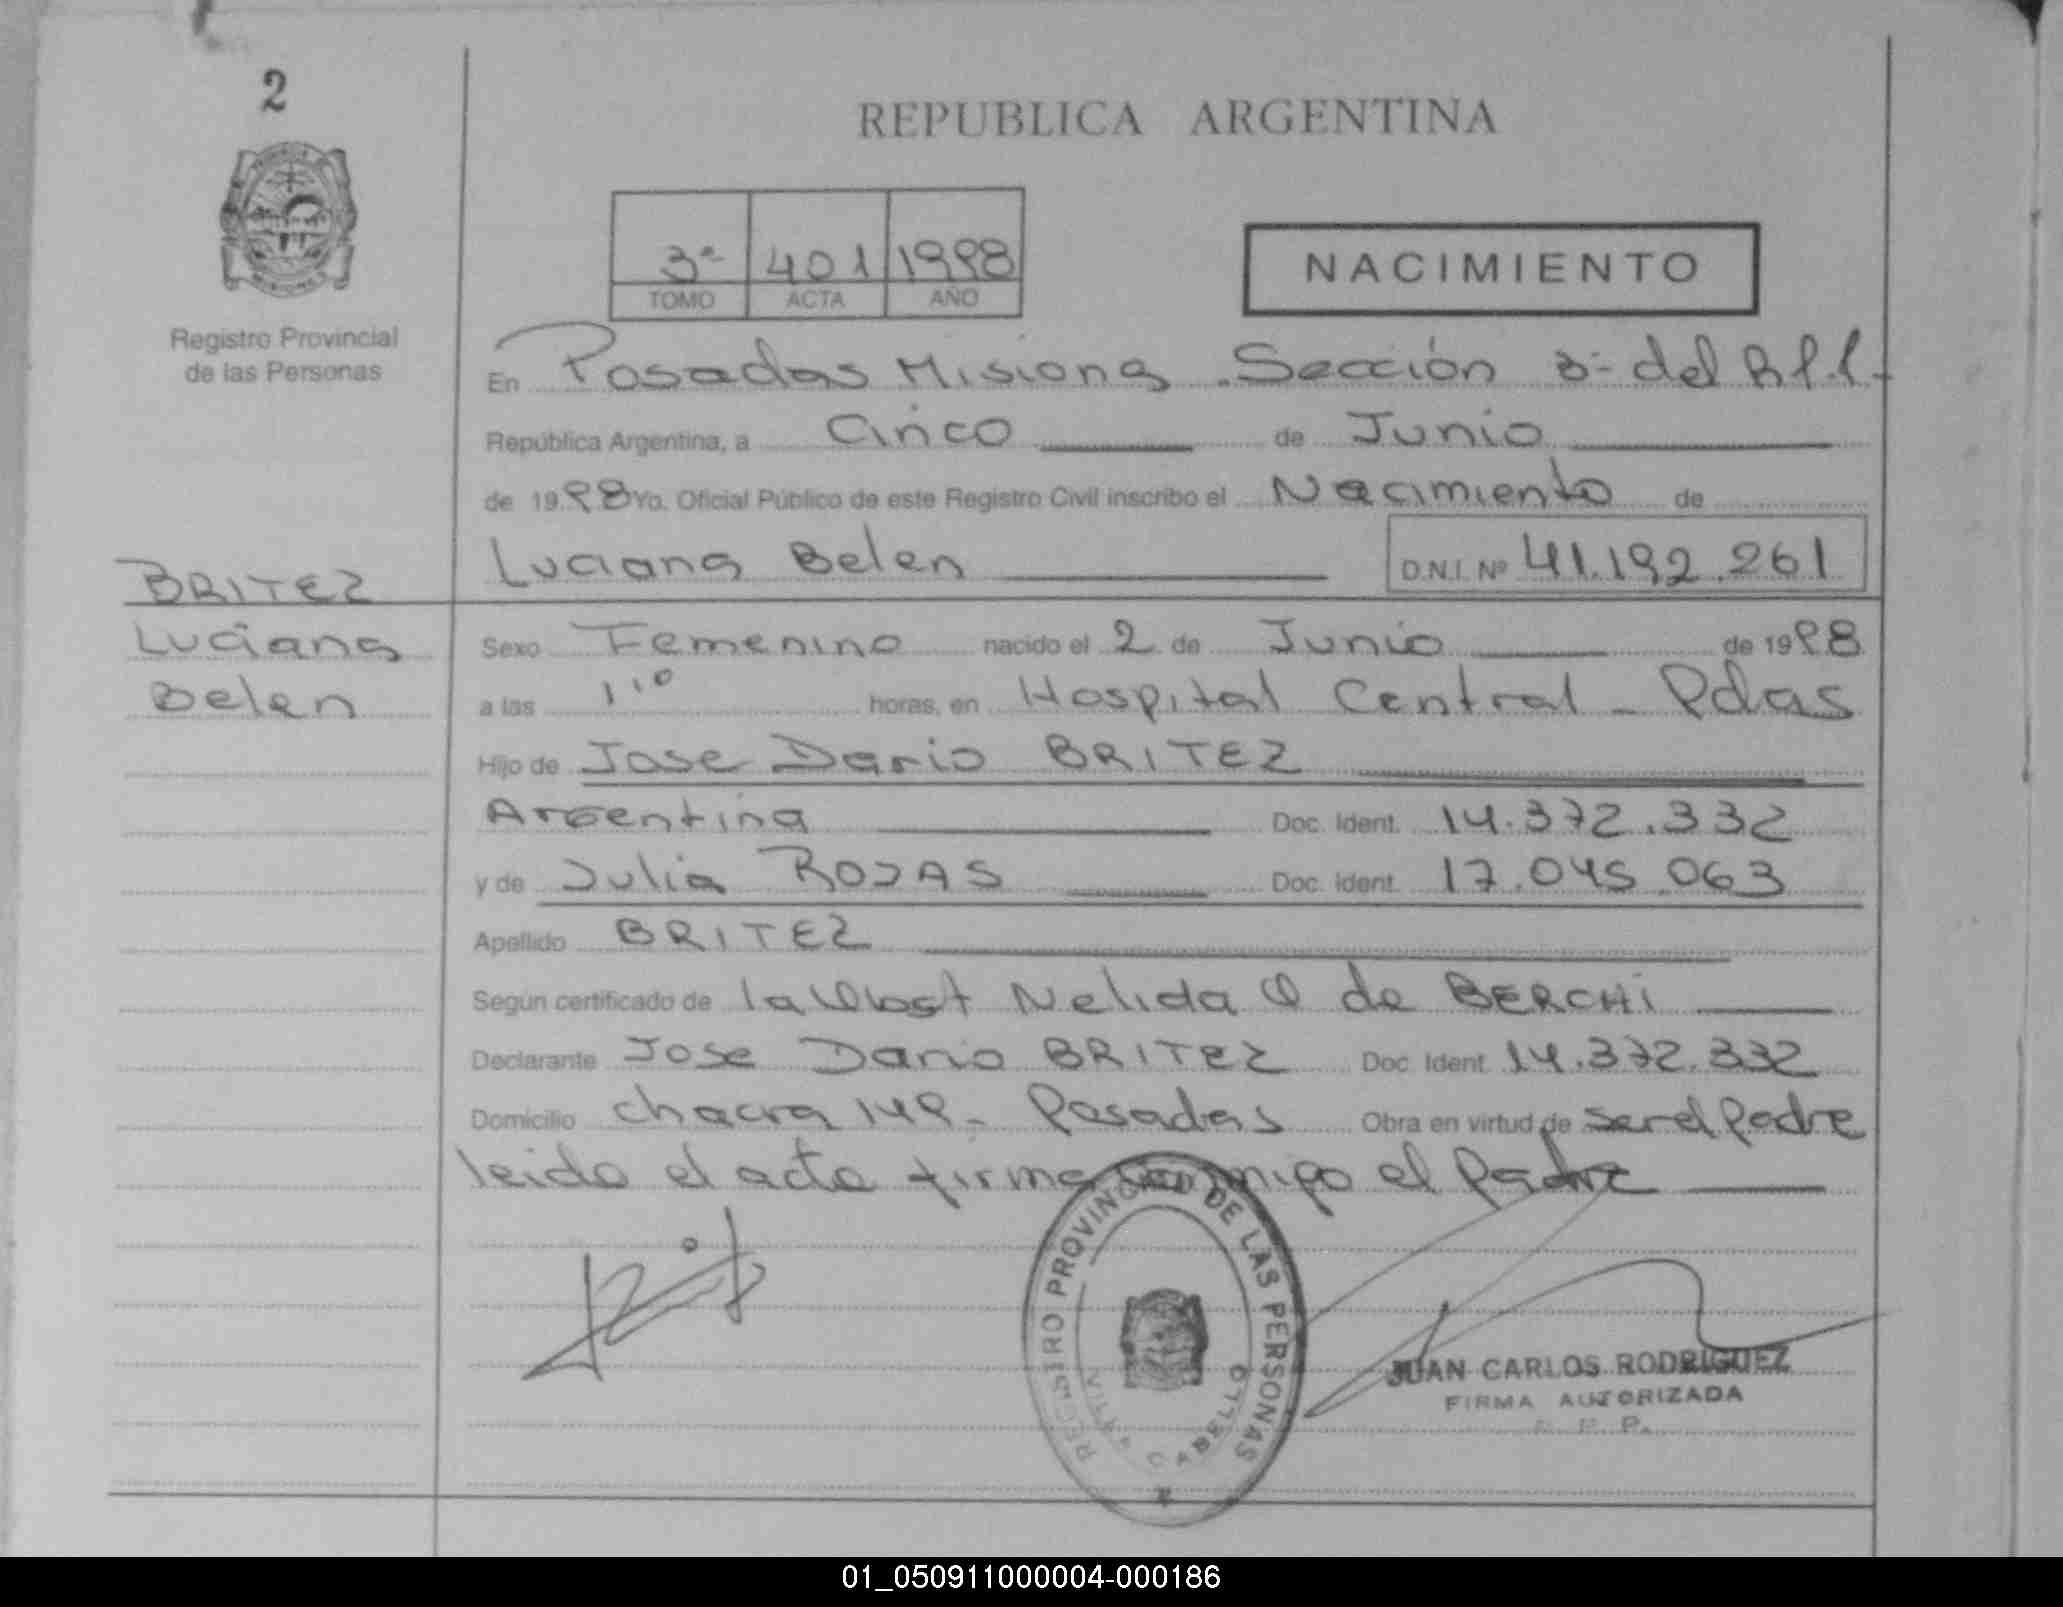 2
REPUBLICA ARGENTINA
3ª 401 1998
TOMO ACTA AÑO
NACIMIENTO
Registro Provincial
de las Personas
En Posadas Misiones Sección 3ª del R.P.P.
República Argentina, a Cinco de Junio
de 1998 Yo. Oficial Público de este Registro Civil inscribo el Nacimiento de
Luciana Belen D.N.I. Nº 41.192.261
BRITEZ
Luciana
Belen
Sexo Femenino nacido el 2 de Junio de 1998
a las 1¹⁰ horas, en Hospital Central - Pdas
Hijo de Jose Dario BRITEZ
Argentina Doc. Ident. 14.372.332
y de Julia ROJAS Doc. Ident. 17.045.063
Apellido BRITEZ
Según certificado de la Obst Nelida O de BERCHI
Declarante Jose Dario BRITEZ Doc. Ident. 14.372.332
Domicilio chacra 149 - Posadas Obra en virtud de ser el Padre
leido el acta firma conmigo el Padre
REGISTRO PROVINCIAL DE LAS PERSONAS
VILLA CABELLO
JUAN CARLOS RODRIGUEZ
FIRMA AUTORIZADA
R. P. P.
01_050911000004-000186